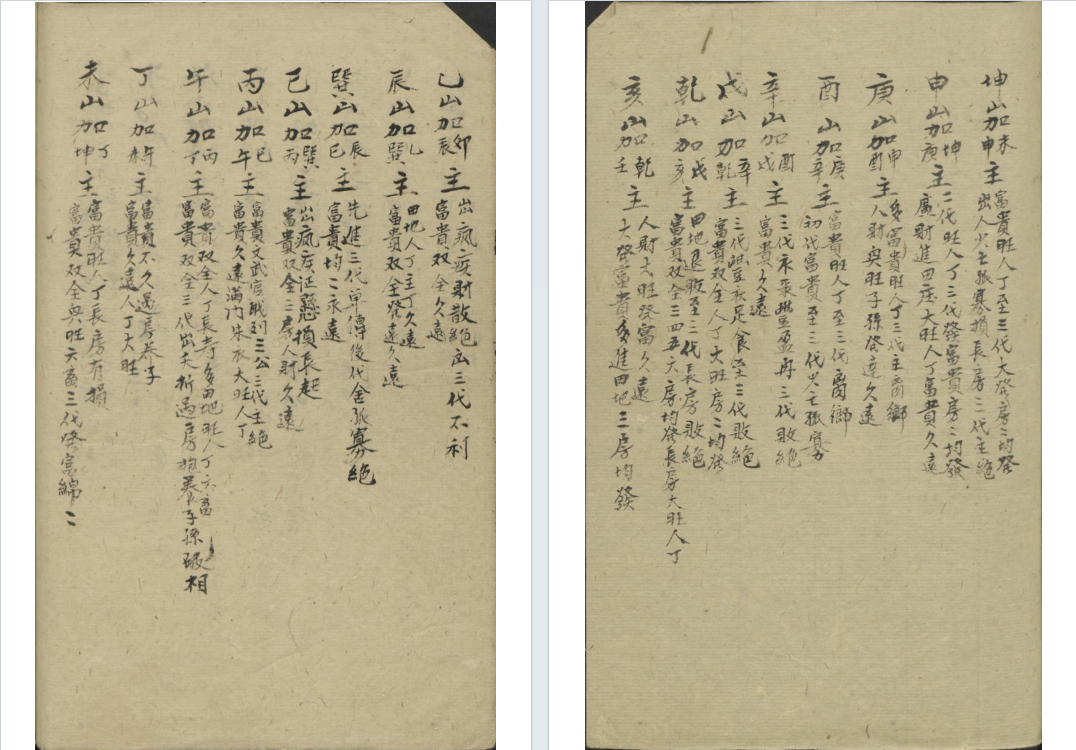 乙山加卯辰主出瘋疾財散絕三代不利
富貴双全久遠
辰山加乙巽主田地人丁主丁久遠
富貴双全發達久遠
巽山加辰巳主先進三代單傳後代金孤寡絕
富貴均二永遠
巳山加巽丙主出瘋疾证損長起
富貴双全二房人財久遠
丙山加巳午主富貴文武官職到三公三代主絕
富貴久遠滿門朱衣大旺人丁
午山加丙丁主富貴双全人丁長寿多田地旺人丁六畜
富貴双全三代出夭折過房抱养子孫破相
丁山加午未主富貴不久過房养子
富貴久遠人丁大旺
未山加丁坤主富貴旺人丁長房有損
富貴双全兴旺六畜三代發富綿二
坤山加未申主富貴旺人丁至三代大發房二均發
出人火亡孤寡損長房二代主絕
申山加坤庚主二代旺人丁三代發富貴房二均發
廣財進田庄大旺人丁富貴久遠
庚山加申酉主多富貴旺人丁三代主离鄉
人財興旺子孫發達久遠
酉山加庚辛主富貴旺人丁至三代离鄉
初代富貴至三代火亡孤寡
辛山加酉戌主三代衣至盈再三代敗絕
富貴久遠
戌山加辛乾主三代衣足食至三代敗絕
富貴双全人丁大旺房二均發
乾山加戌亥主田地退敗至三代長房敗絕
富貴双全三四五六房均發長房大旺人丁
亥山加乾壬主人財大旺發富久遠
大發富貴多進田地三房均發